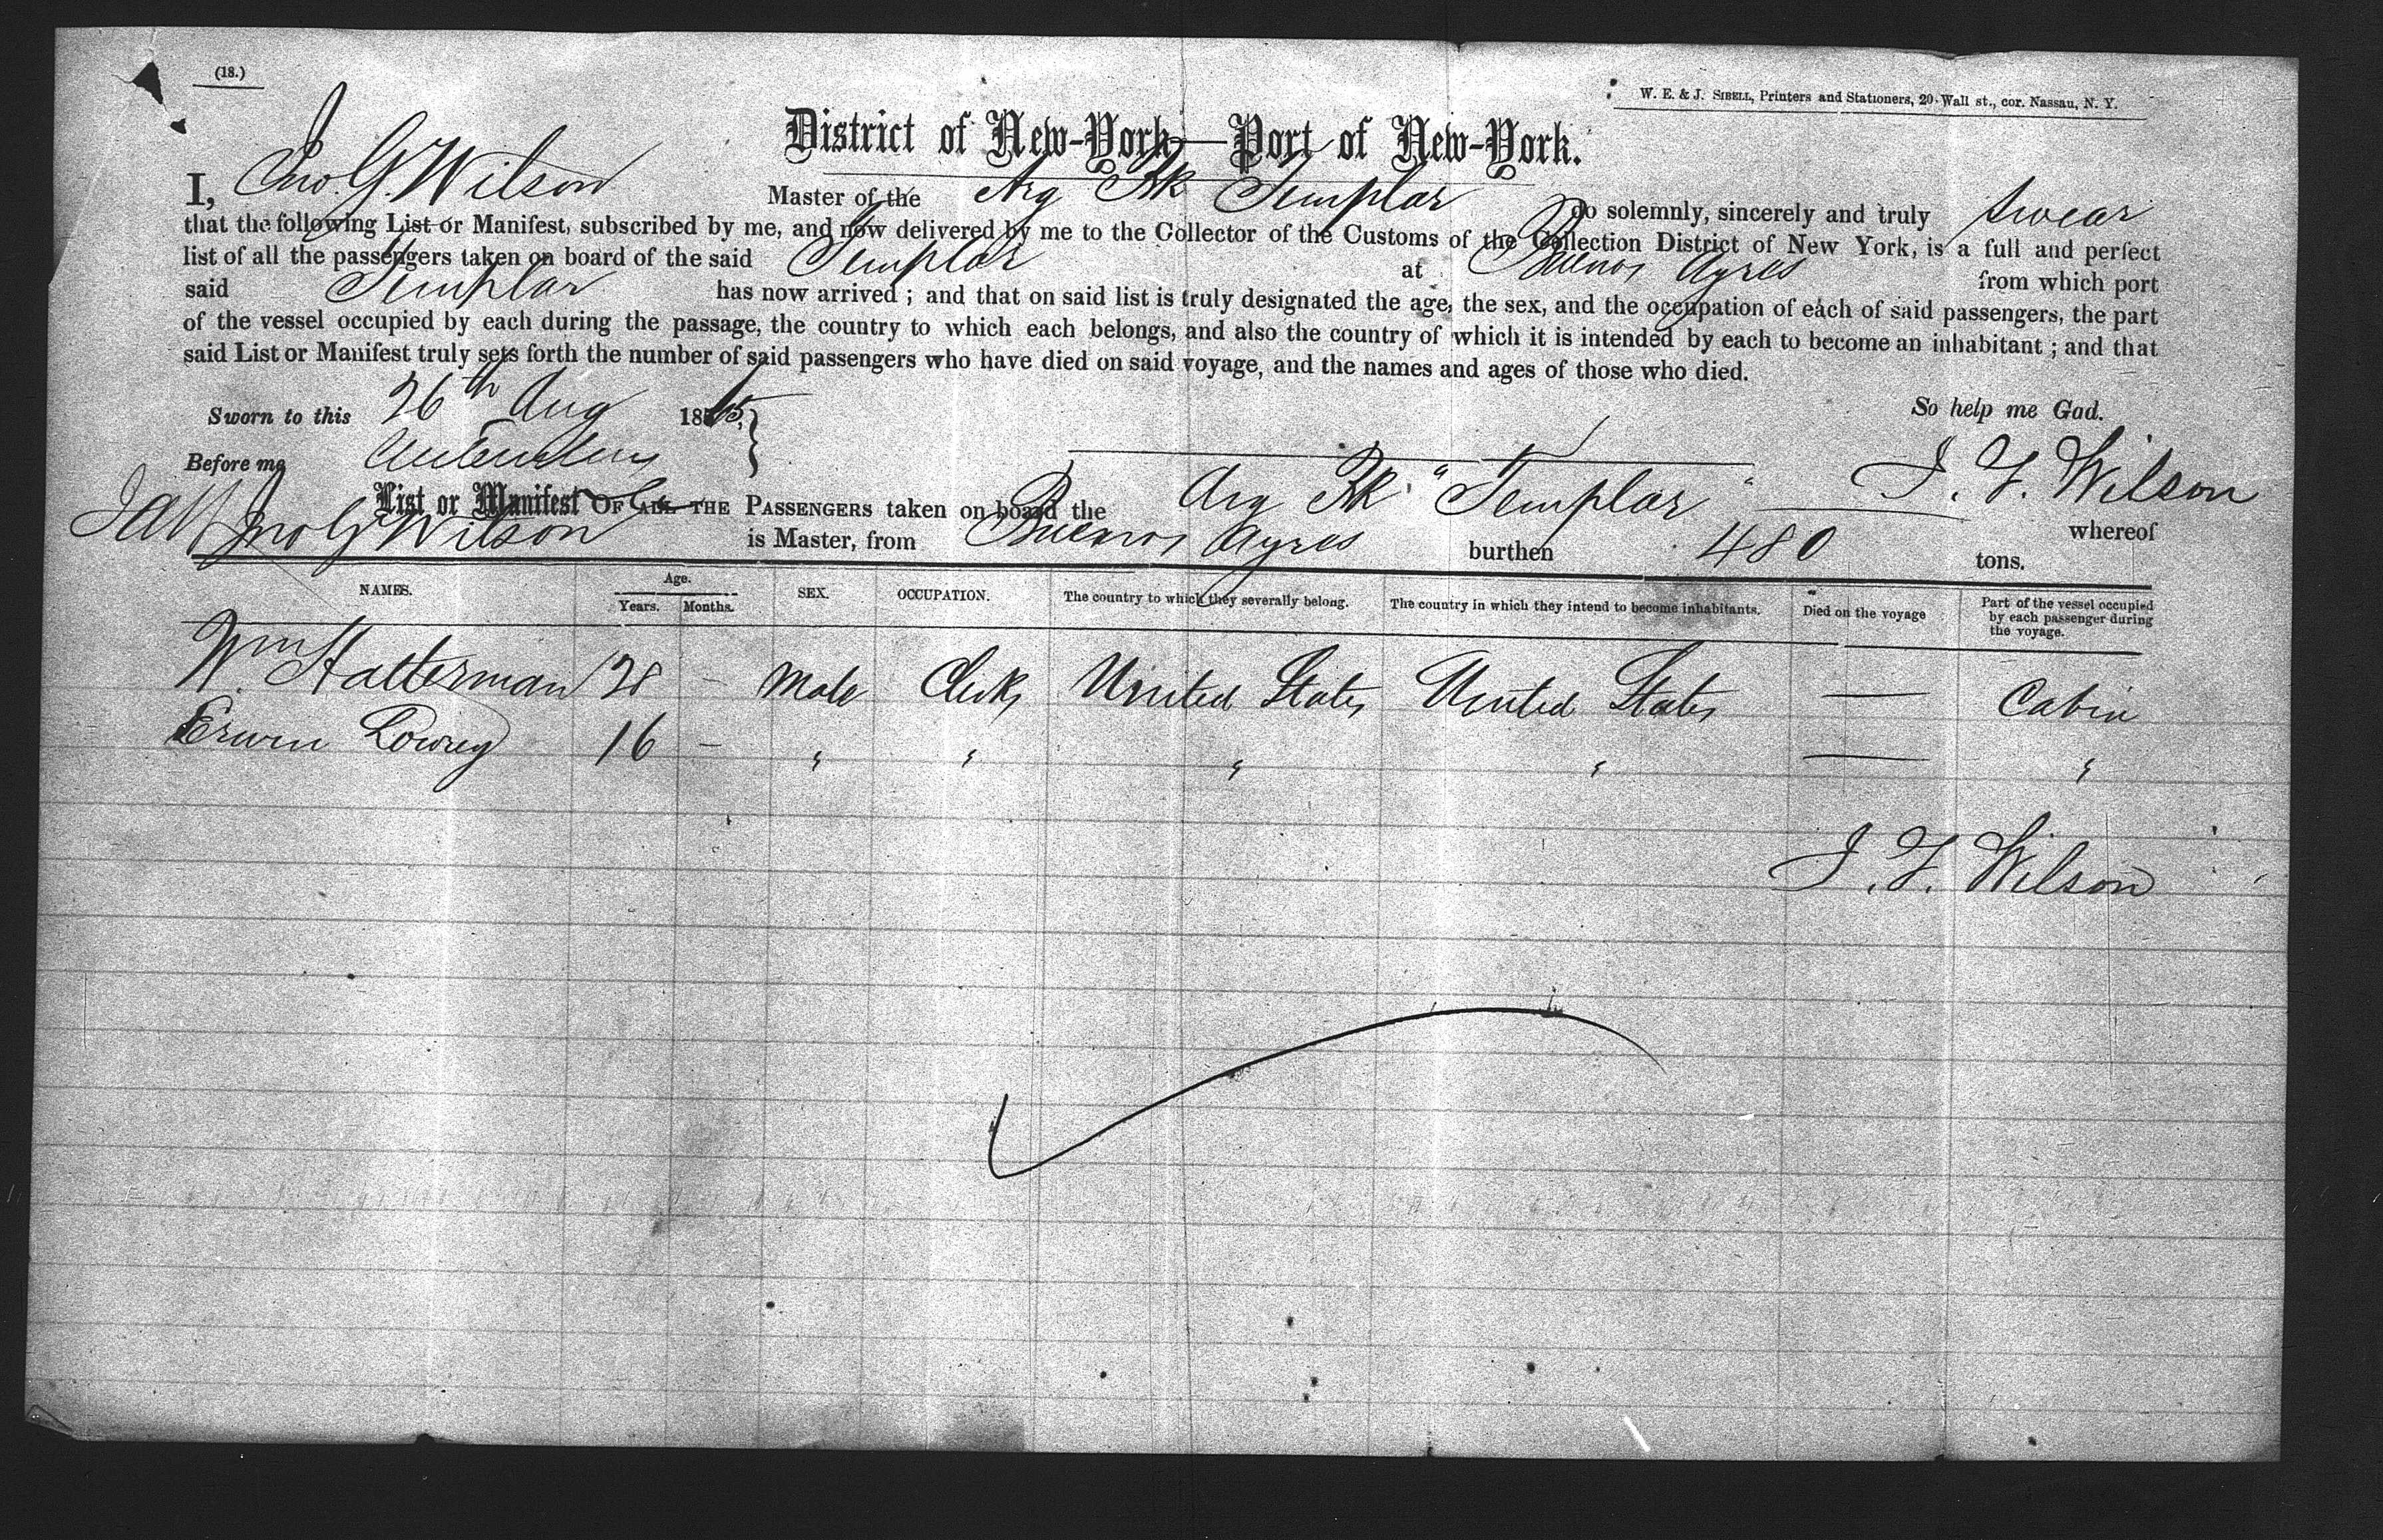 (18.)
W. E. & J. SIBELL, Printers and Stationers, 20 Wall st., cor. Nassau, N. Y.
District of New-York—Port of New-York.
I, Jno. G. Wilson Master of the Arg Bk Templar do solemnly, sincerely and truly swear
that the following List or Manifest, subscribed by me, and now delivered by me to the Collector of the Customs of the Collection District of New York, is a full and perfect
list of all the passengers taken on board of the said Templar at Buenos Ayres from which port
said Templar has now arrived ; and that on said list is truly designated the age, the sex, and the occupation of each of said passengers, the part
of the vessel occupied by each during the passage, the country to which each belongs, and also the country of which it is intended by each to become an inhabitant ; and that
said List or Manifest truly sets forth the number of said passengers who have died on said voyage, and the names and ages of those who died.
Sworn to this 26th Aug 1865, So help me God.
Before me J. G. Wilson
List or Manifest OF ALL THE PASSENGERS taken on board the Arg Bk "Templar" whereof
Jno G Wilson is Master, from Buenos Ayres burthen 480 tons.
NAMES. Age. Years. Months. SEX. OCCUPATION. The country to which they severally belong. The country in which they intend to become inhabitants. Died on the voyage Part of the vessel occupied by each passenger during the voyage.
Wm Hatterman 28 – Male Clerk United States United States — Cabin
Erwin Lowrey 16 – " " " " — "
J. G. Wilson